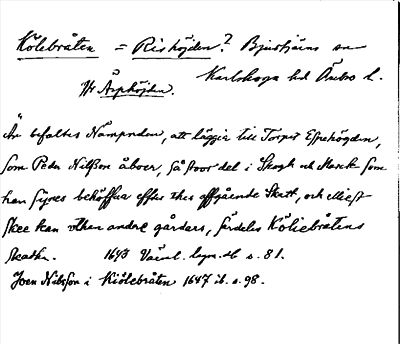 Kölebråten = Rishöjden? Bjurtjärns sn
Karlskoga hd Örebro l.
Å Asphöjden.
Är befaltes Nämpnden, att läggia till Torpet Espehögden,
som Peder Nilsson åboer, så stoor del i Skogh och Marck som
han synes behöffua effter thes affgående Skatt, och mest
skee kan uthan andre gårdars, särdeles Köliebråtens
skadha. 1643 Värml. lagm.db s. 81.
Joen Nilsson i Kiölebråten 1647 ib. s. 98.